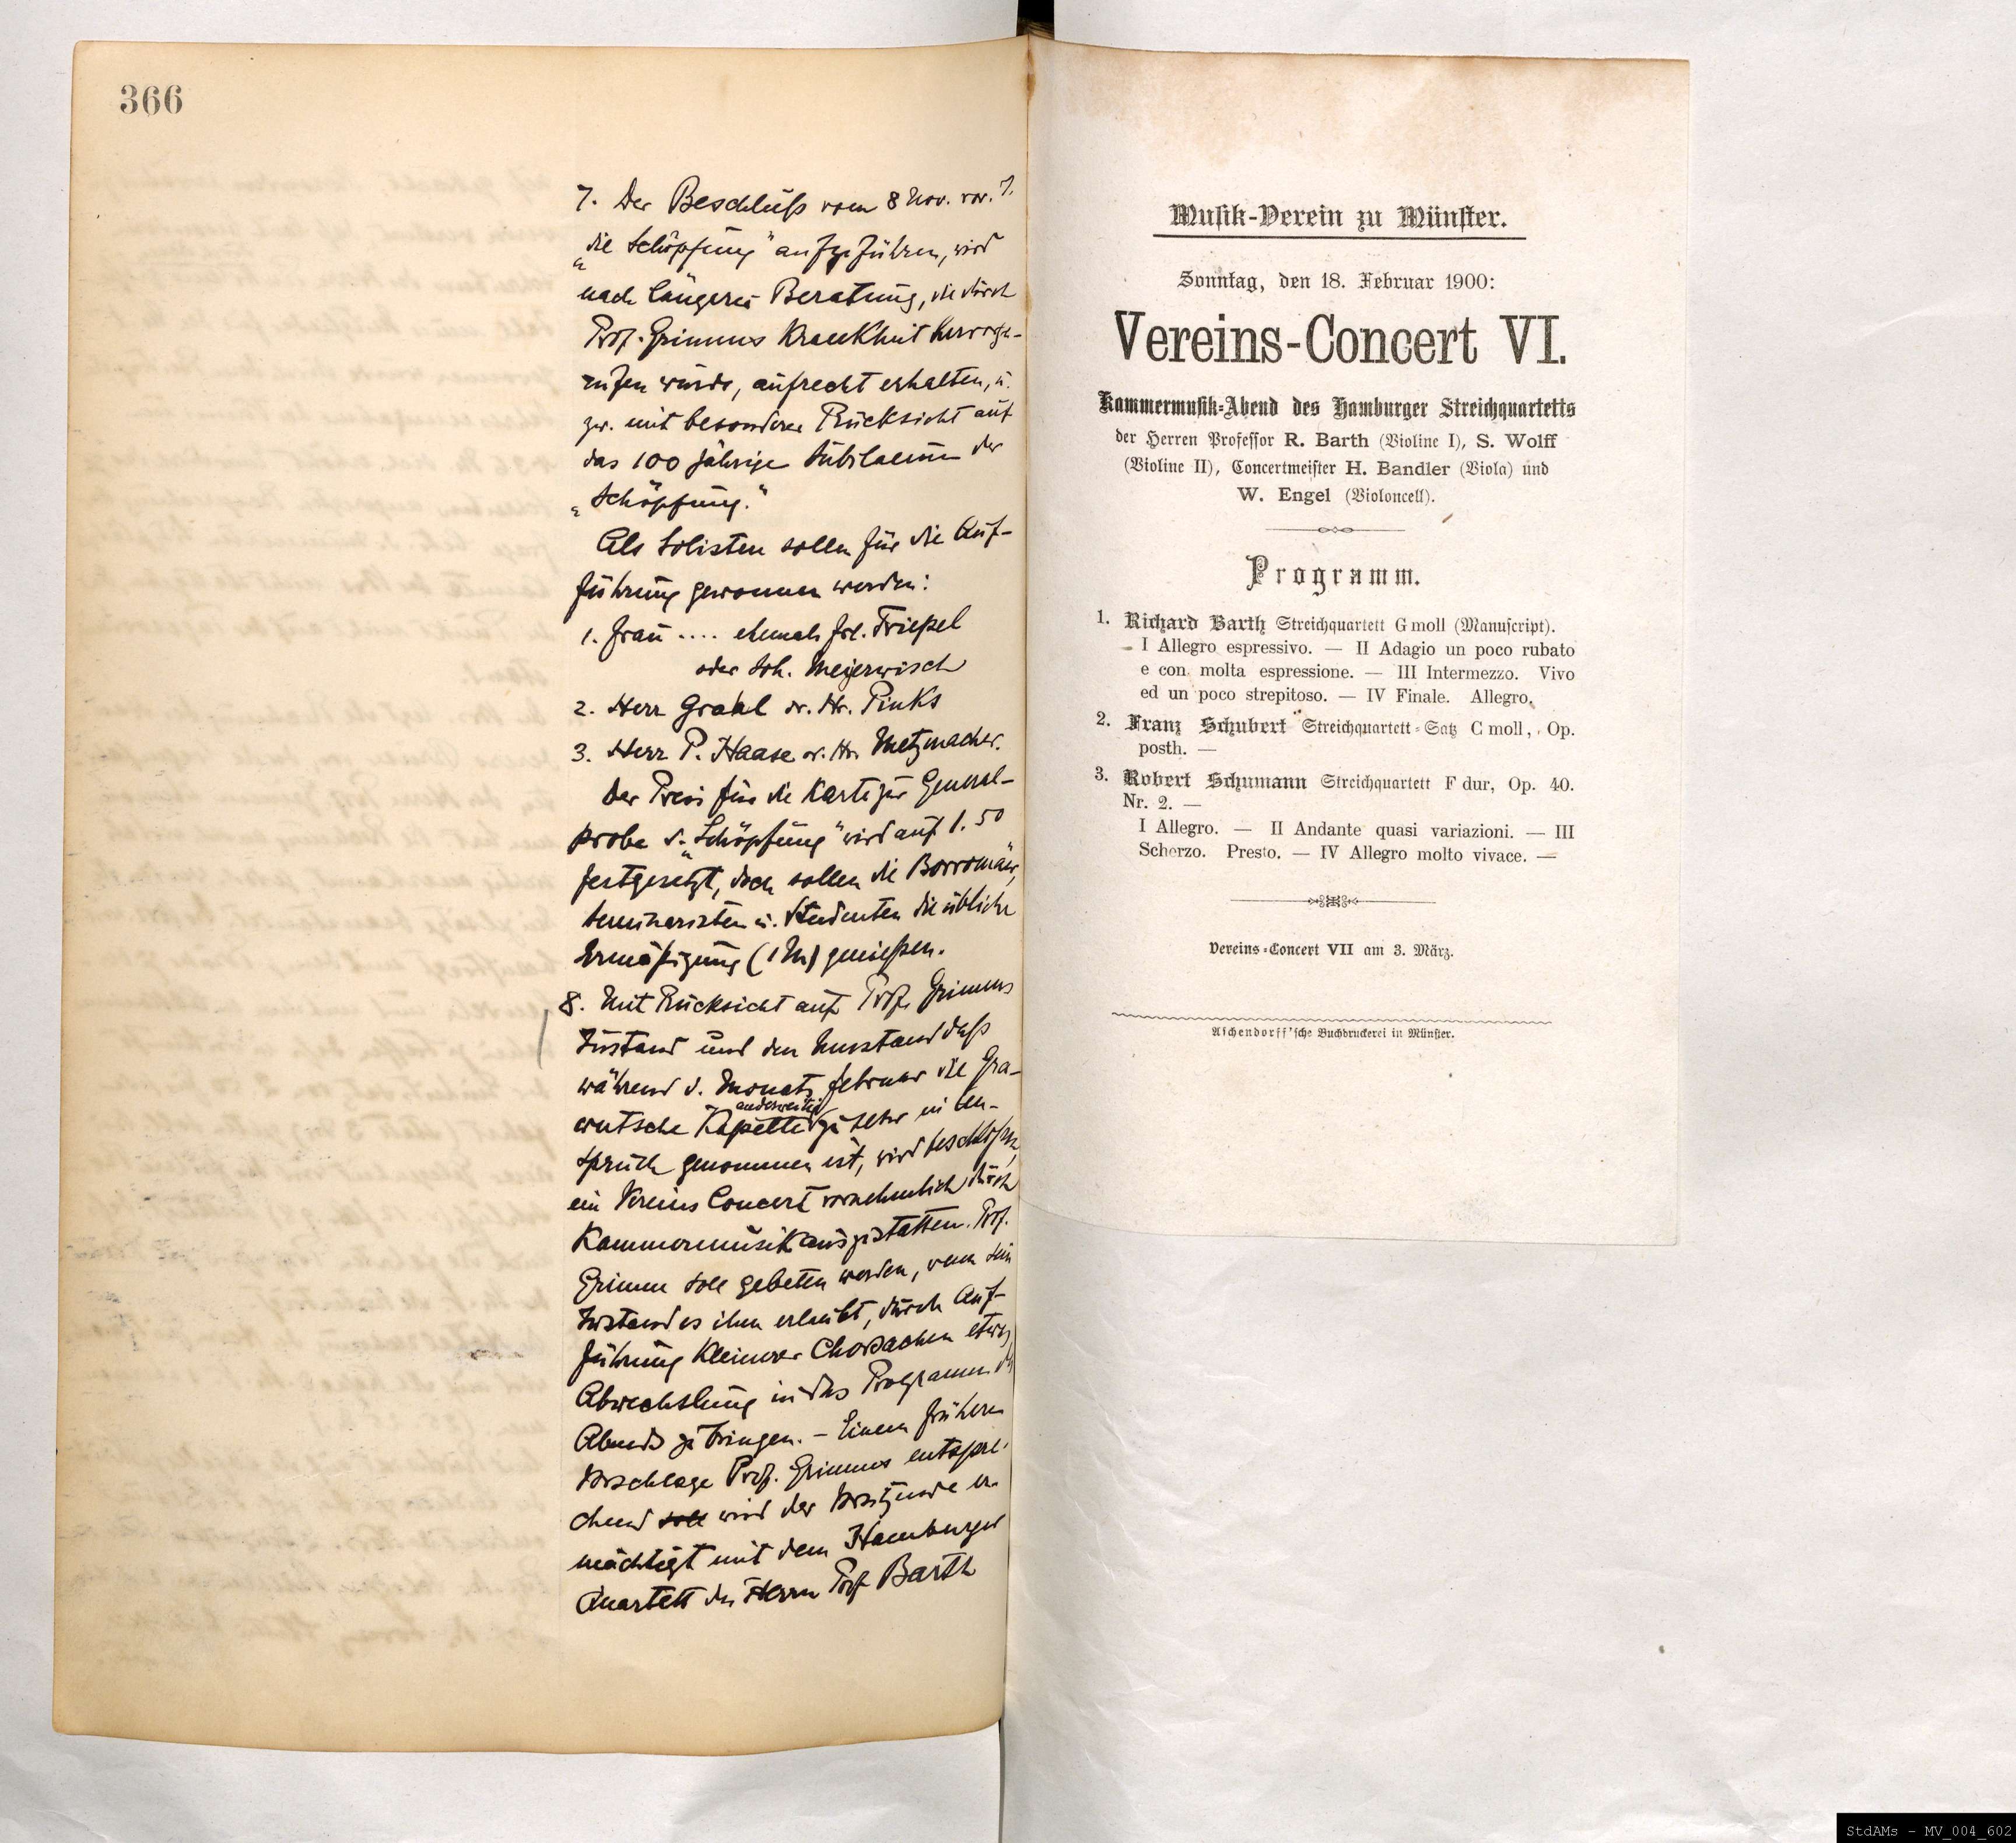 366
7. Der Beschluß vom 8 Nov. vor. J.
„die Schöpfung" aufzuführen, wird
nach längerer Beratung, die durch
Prof. Grimms Krankheit hervorge-
rufen wurde, aufrecht erhalten, u.
zw. mit besonderer Rücksicht auf
das 100 jährige Jubilaeum der
„Schöpfung."
Als Solisten sollen für die Auf-
führung gewonnen werden:
1. Frau .... ehemals Frl. Triepel
oder Joh. Meyerwisch
2. Herr Grahl od. Hr. Pinks
3. Herr P. Haase od. Hr. Metzmacher.
Der Preis für die Karte zur General-
probe d. „Schöpfung" wird auf 1.50
festgesetzt, doch sollen die Borromäer,
Seminaristen u. Studenten die übliche
Ermäßigung (1 M) genießen.
8. Mit Rücksicht auf Prof. Grimms
Zustand und den Umstand daß
während d. Monats Februar die Gra-
wertsche Kapelle anderweitig zu sehr in An-
spruch genommen ist, wird beschlossen,
ein Vereins Concert vornehmlich durch
Kammermusik auszustatten. Prof.
Grimm soll gebeten werden, wenn sein
Zustand es ihm erlaubt, durch Auf-
führung kleinerer Chorsachen etwas
Abwechslung in das Programm des
Abends zu bringen. – Einem früheren
Vorschlage Prof. Grimms entspre-
chend soll wird der Vorsitzende er-
mächtigt mit dem Hamburger
Quartett des Herrn Prof Barth
Musik-Verein zu Münster.
Sonntag, den 18. Februar 1900:
Vereins-Concert VI.
Kammermusik-Abend des Hamburger Streichquartetts
der Herren Professor R. Barth (Violine I), S. Wolff
(Violine II), Concertmeister H. Bandler (Viola) und
W. Engel (Violoncell).
Programm.
1. Richard Barth Streichquartett G moll (Manuscript).
I Allegro espressivo. — II Adagio un poco rubato
e con molta espressione. — III Intermezzo. Vivo
ed un poco strepitoso. — IV Finale. Allegro.
2. Franz Schubert Streichquartett-Satz C moll, Op.
posth. —
3. Robert Schumann Streichquartett F dur, Op. 40.
Nr. 2. —
I Allegro. — II Andante quasi variazioni. — III
Scherzo. Presto. — IV Allegro molto vivace. —
Vereins-Concert VII am 3. März.
Aschendorff'sche Buchdruckerei in Münster.
StdAMs - MV_004_602